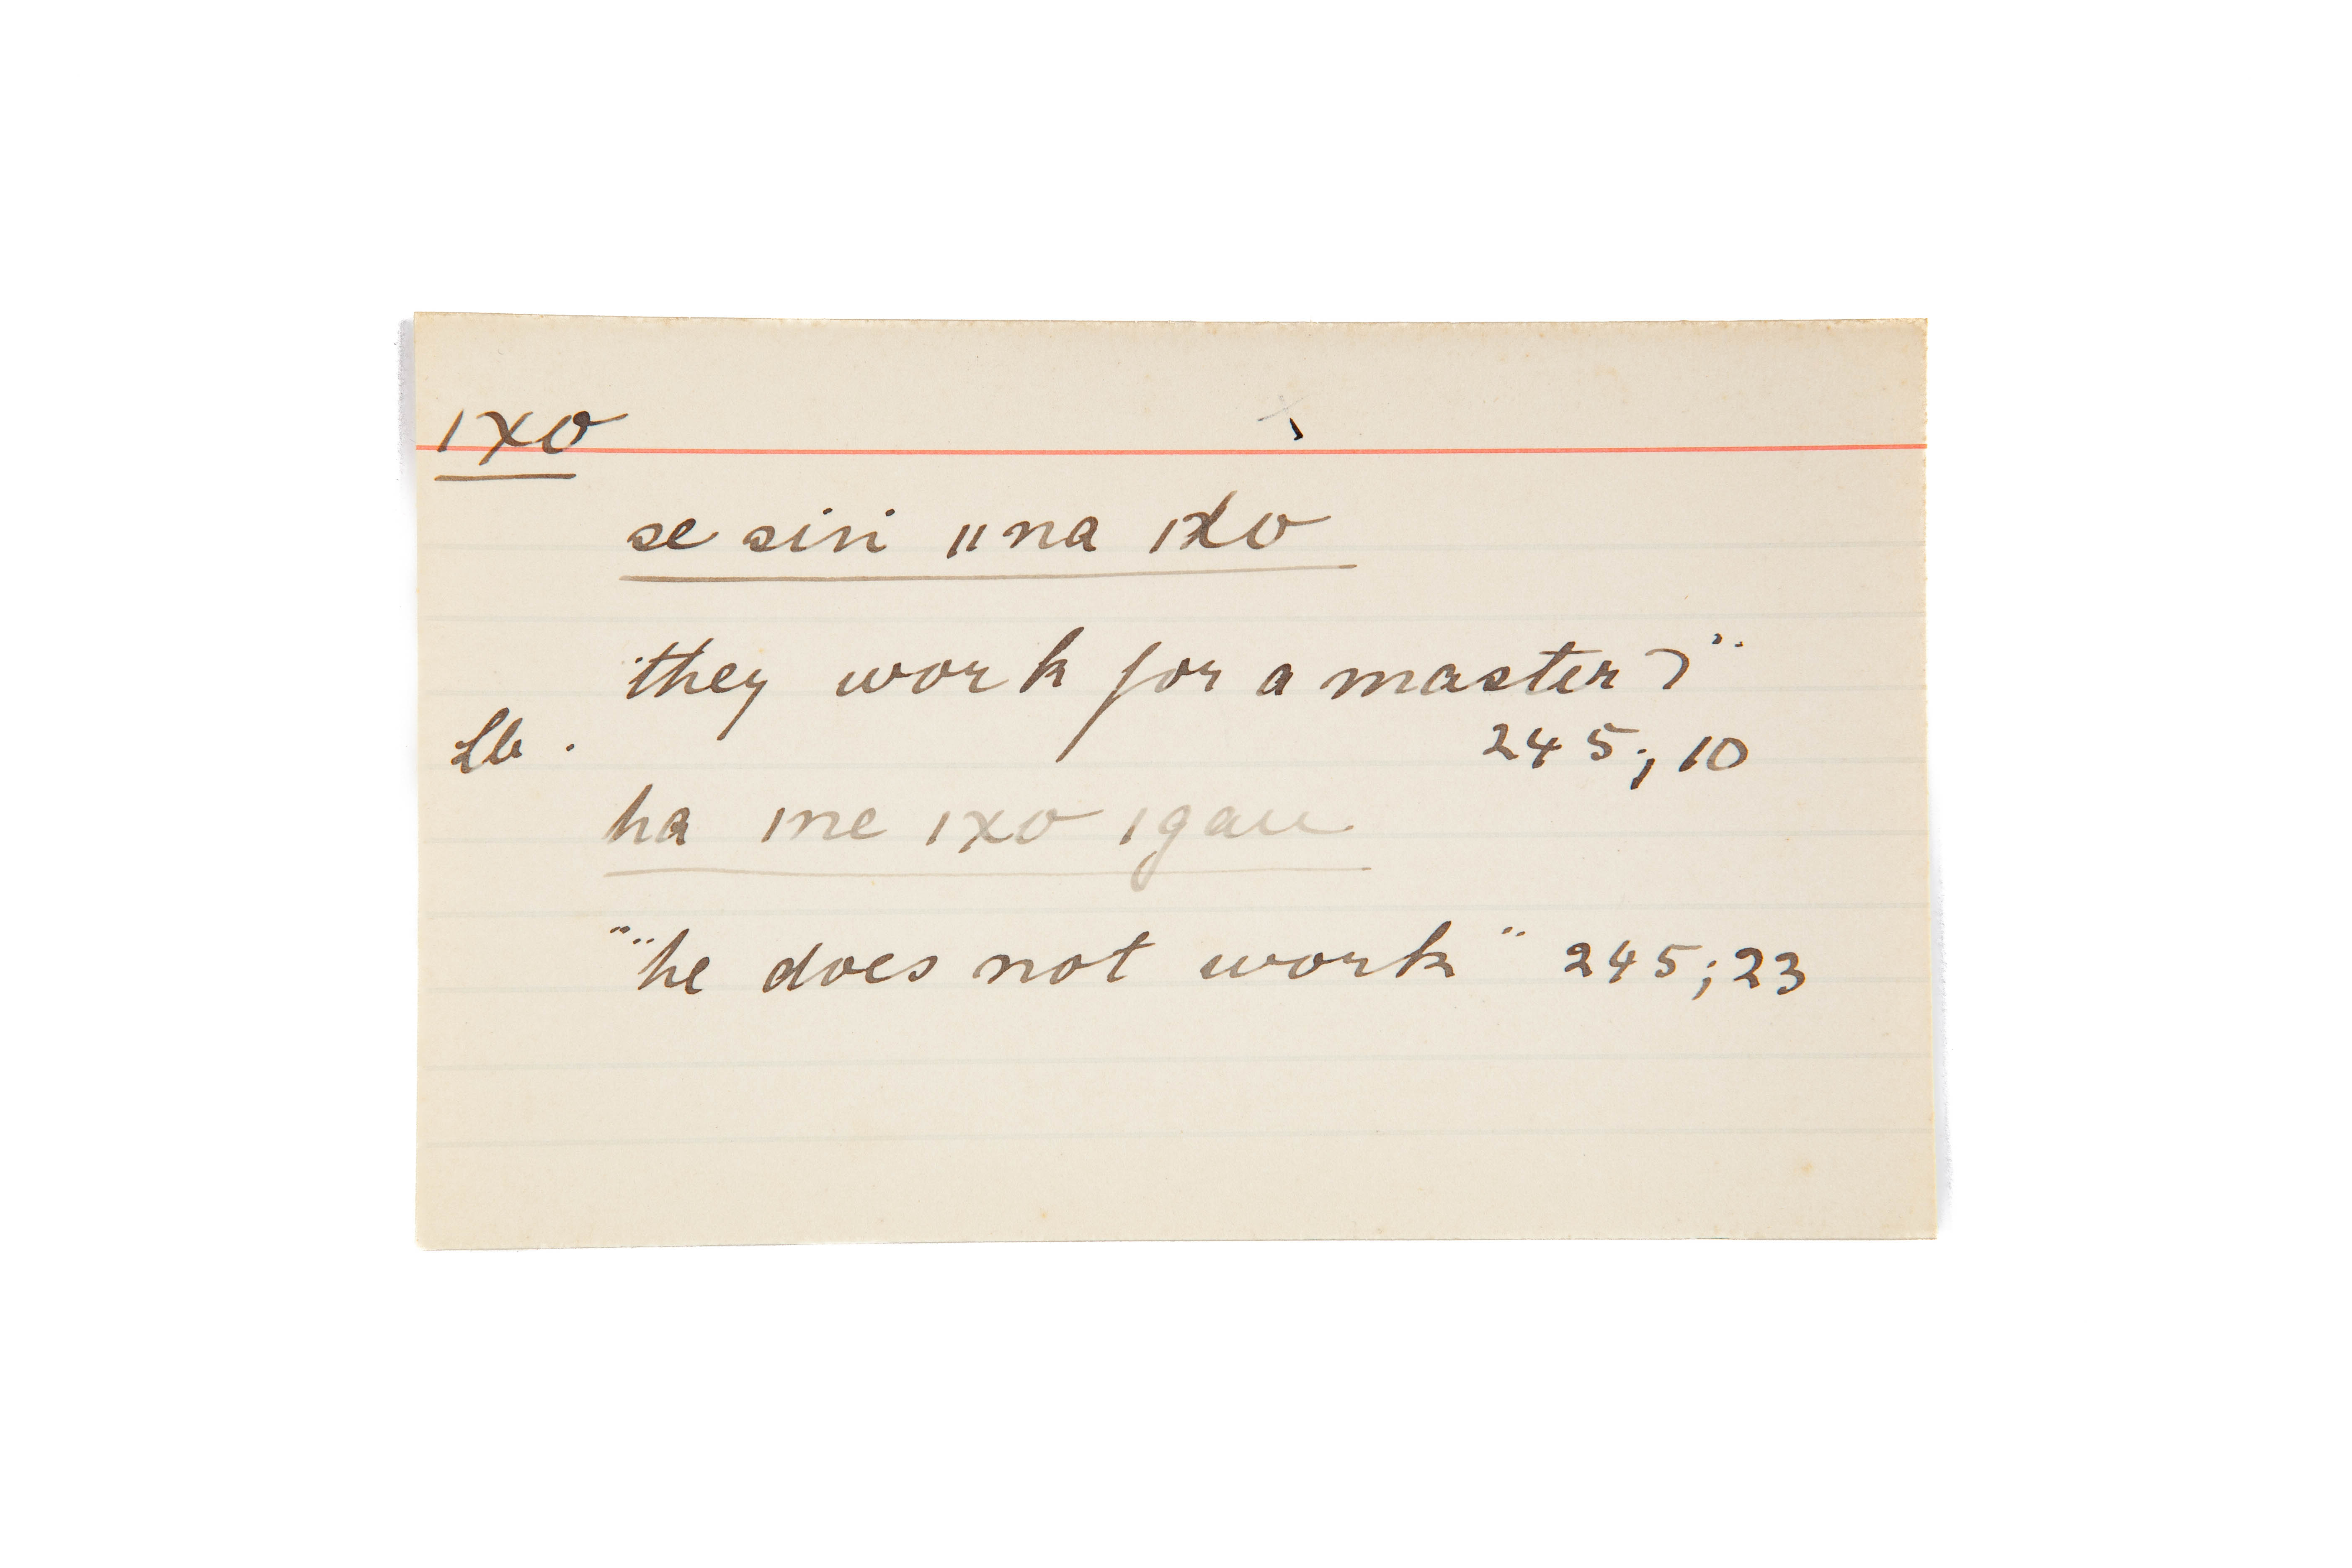 ǀxo
se siri ǁna ǀxo
"they work for a master?"
Lb. 245; 10
ha ǀne ǀxo ǀgau
"he does not work" 245; 23